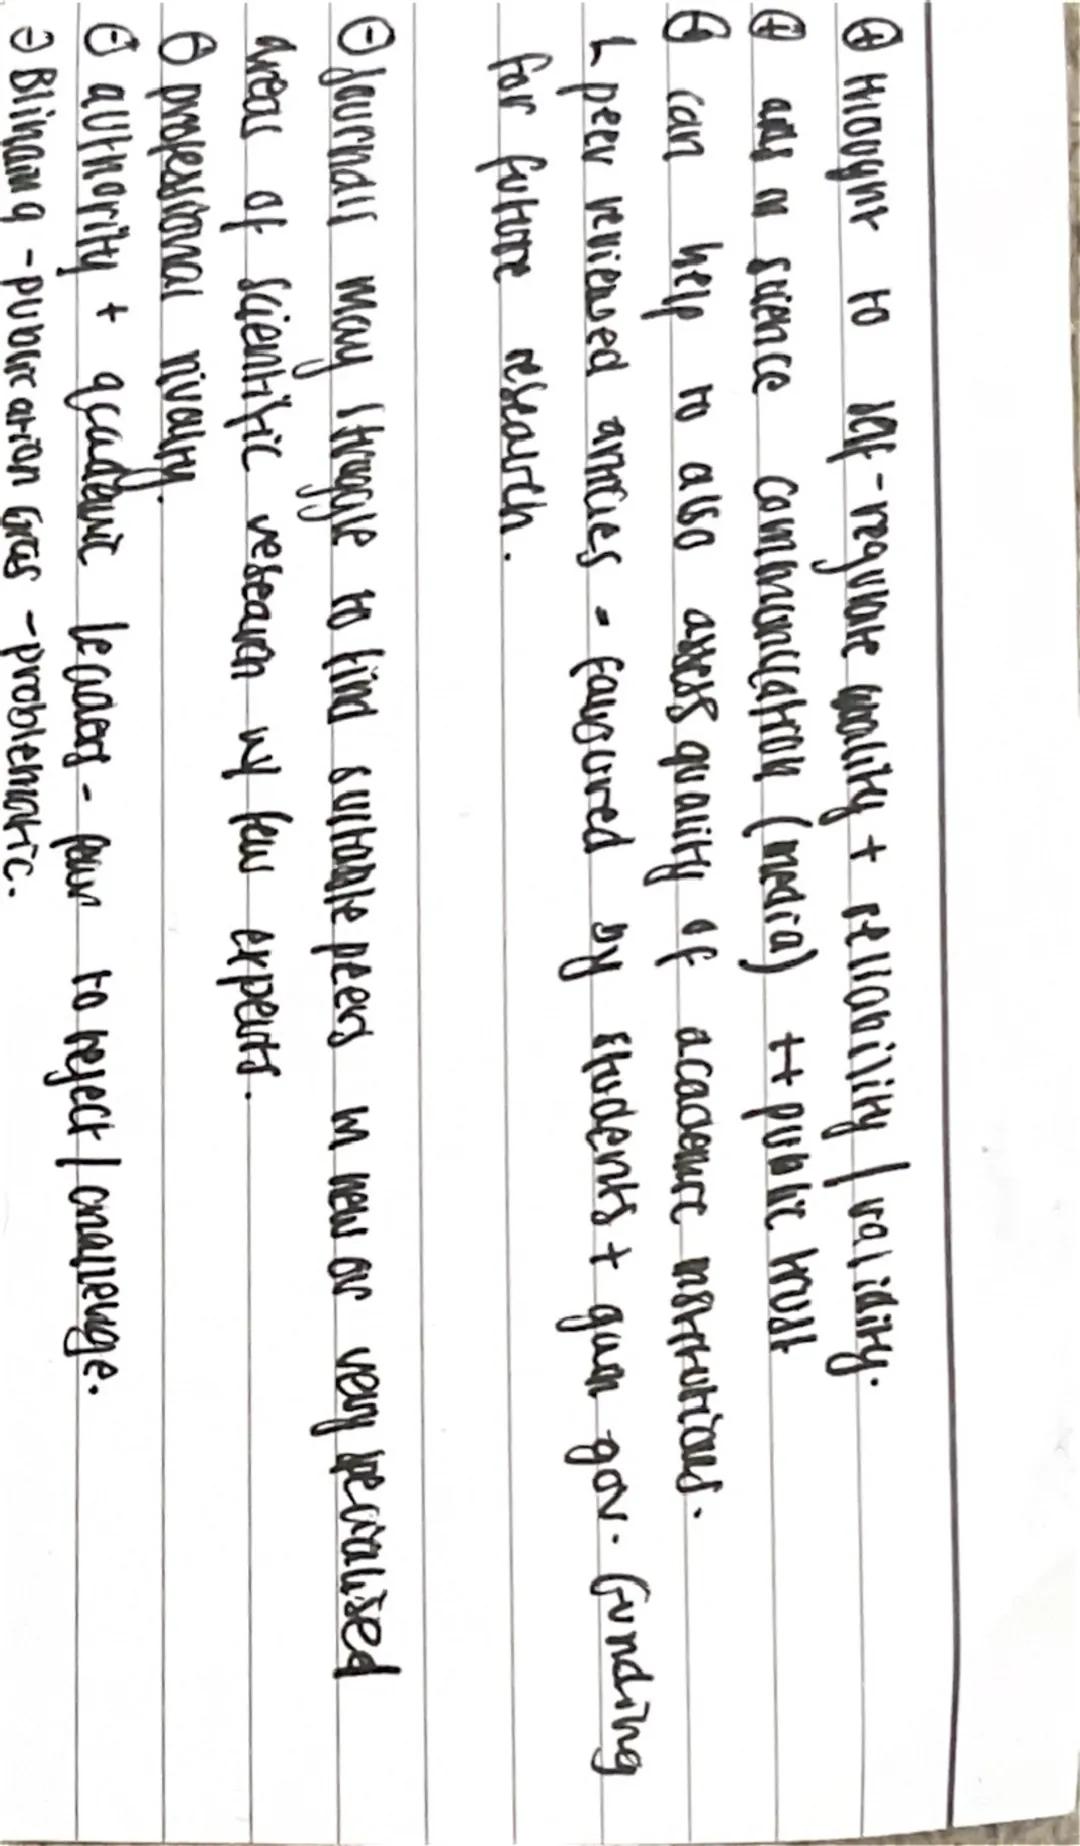 ⊕ thought to self-regulate quality + reliability / validity.
⊕ acts as science communication (media) ++ public trust
⊕ can help to also assess quality of academic institutions.
↳ peer reviewed articles - favoured by students + given gov. funding
for future research.
⊖ Journals may struggle to find suitable peers in new or very specialised
areas of scientific research w/ few experts.
⊖ professional rivalry.
⊖ authority + academic leaders - fear to reject / challenge.
⊖ Blinding - publication bias - problematic.